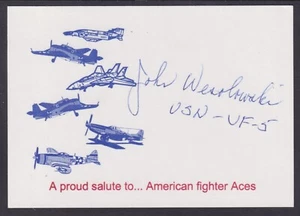 John Wesolowski
USN - VF-5
A proud salute to... American fighter Aces